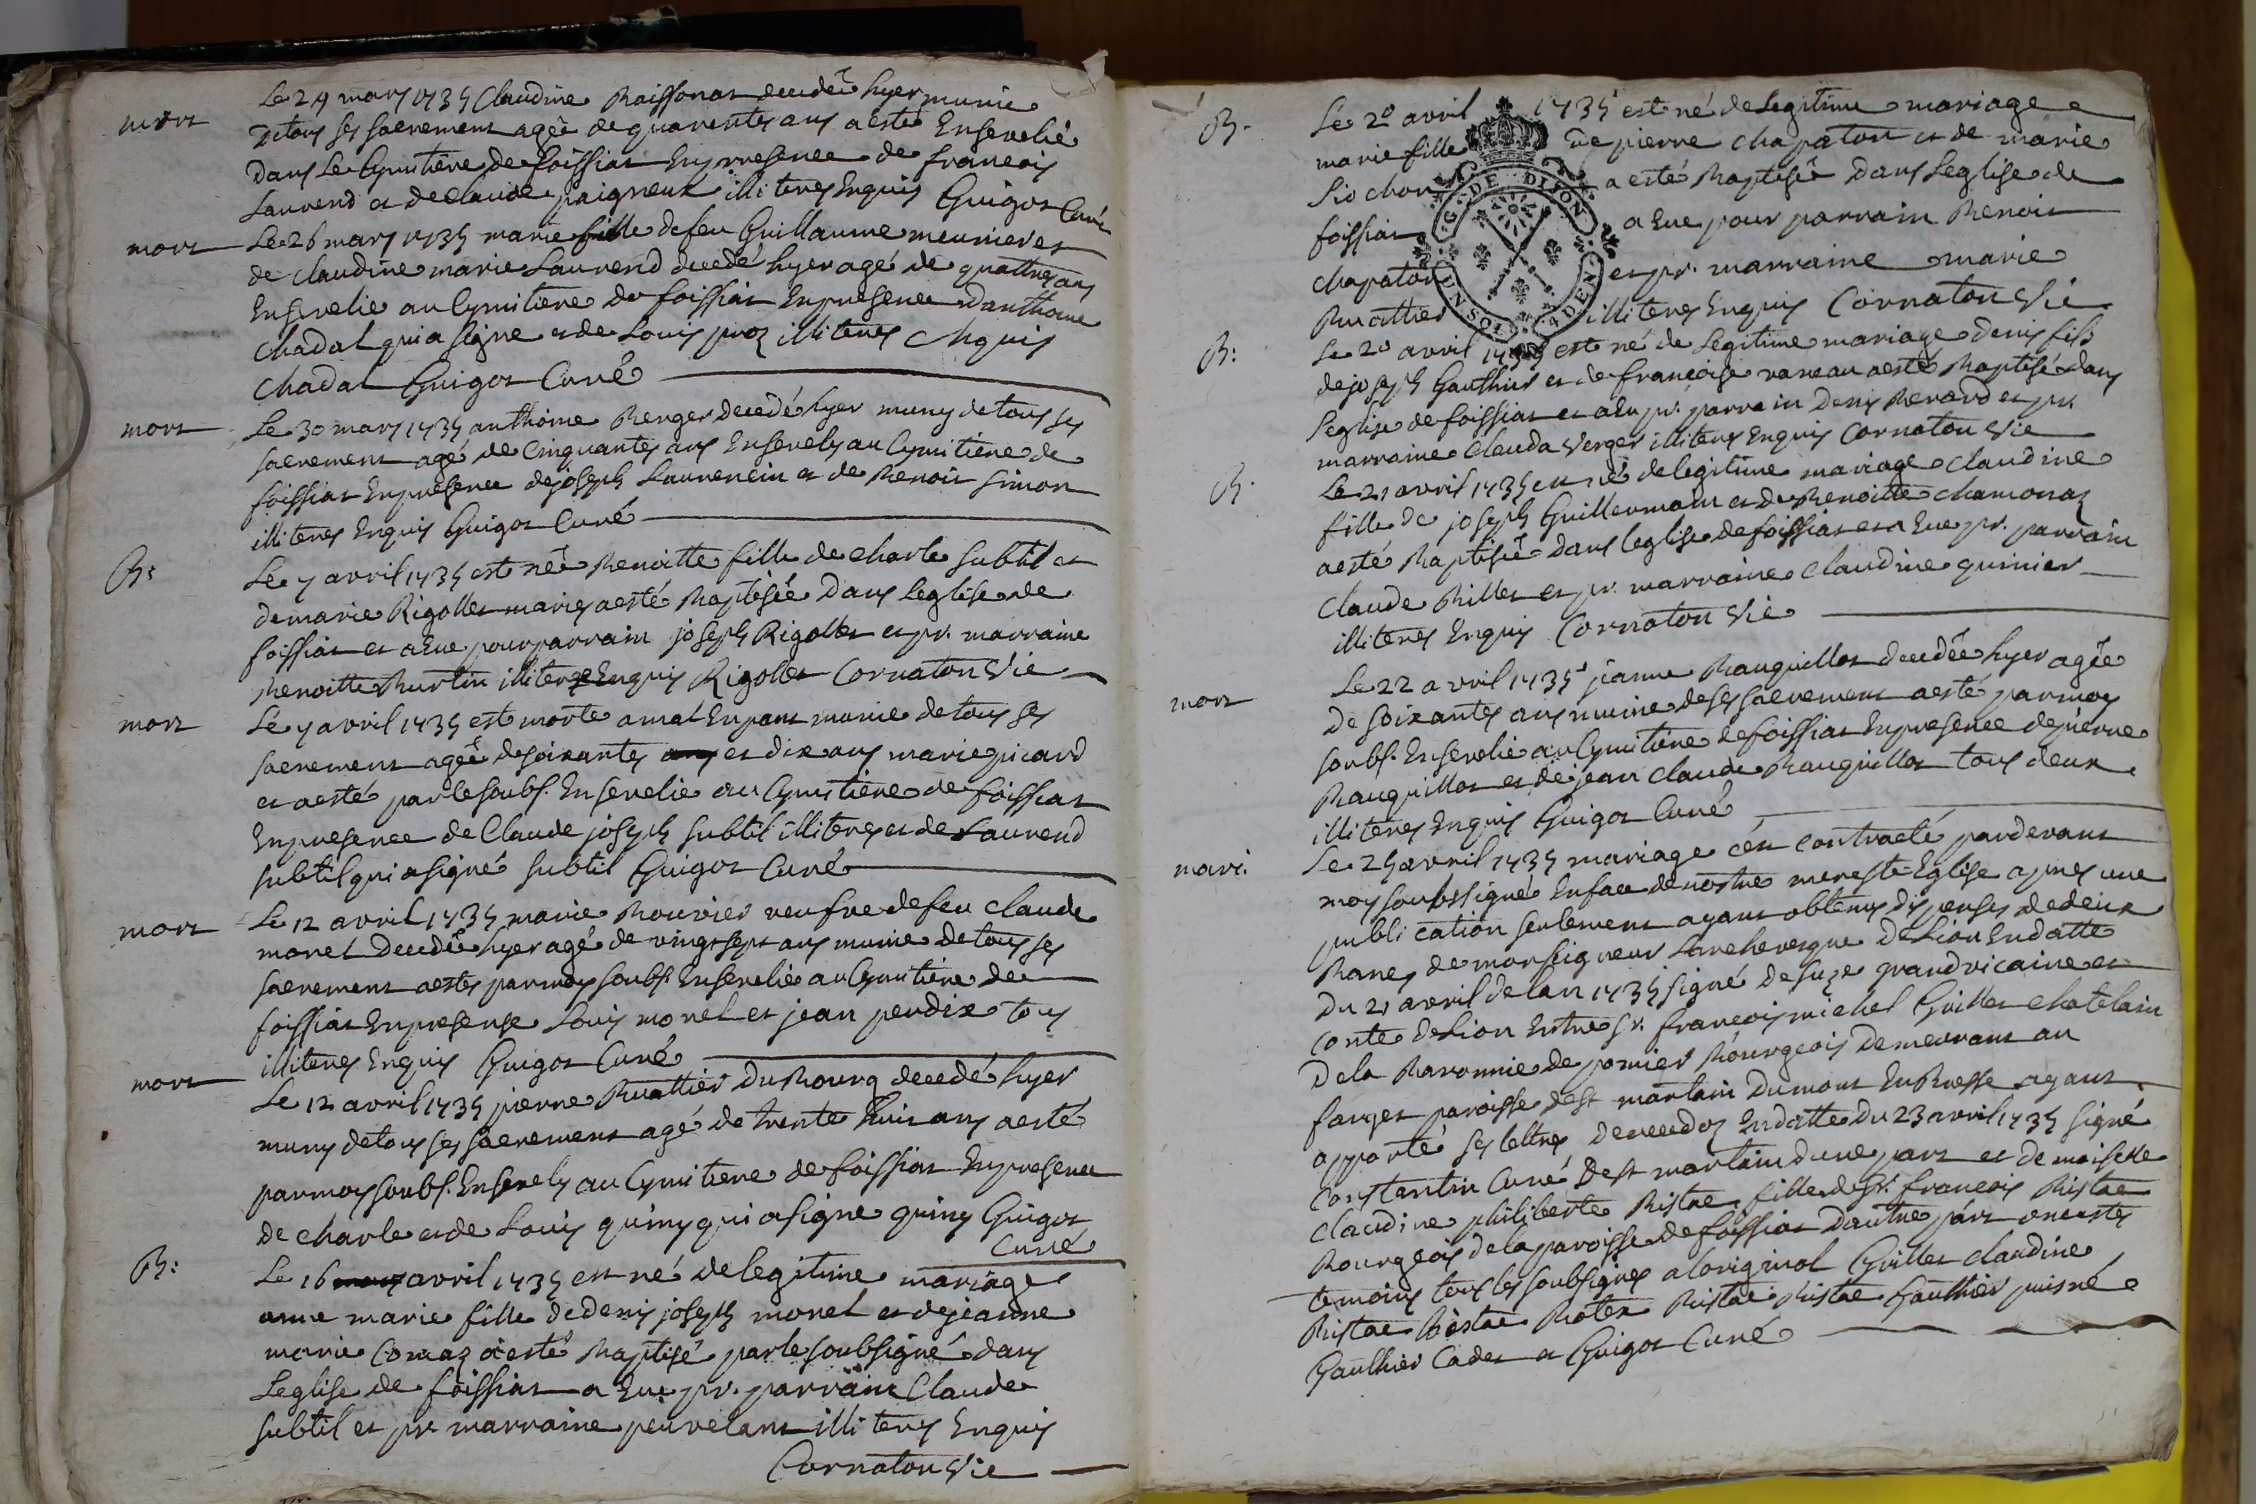 mort
Le 24 mars 1735 Claudine Raissonat decedée hyer munie
De tous ses sacrement agée de quarantes ans a esté Ensevelié
dans Le Cymitiere de foissiat En presence de francois
Laurend et de claude paigneux illiteres Enquis Guigot Curé
mort
Le 26 mars 1735 marie fille de feu Guillaume meunier et
de claudine marie Laurend decedé hyer agé de quattres ans
Ensevelie au Cymitiere de foissiat En presence danthoine
chadal qui a signe et de Louis proz illiteres Enquis
chadal Guigot Curé
mort
Le 30 mars 1735 anthoine Berger decedé hyer muny de tous ses
sacrement agé de Cinquantes ans Ensevely au Cymitiere de
foissiat En presence de joseph Laurencin et de Benoit Simon
illiteres Enquis Guigot Curé
B:
Le 7 avril 1735 est neé Benoitte fille de charle Subtil et
de marie Rigollet maries a esté Baptisée Dans Leglise de
foissiat et a Eue pour parrain joseph Rigollet et pr. marraine
Benoitte Burtin illitere Enquis Rigollet Cornaton Vic
mort
Le 7 avril 1735 est morte a mal Enpant munie de tous ses
sacrement agée de soixantes ans et dix ans marie picard
et a esté par le soubs. Ensevelie au Cymitiere de foissiat
En presence de Claude joseph Subtil illiteres et de Laurend
subtil qui a signé subtil Guigot Curé
mort
Le 12 avril 1735 marie Bouvier veufve de feu Claude
morel Decedée hyer agé de vingt sept ans munie De tous ses
sacrement a estes par moy soubs. Ensevelie au Cymitiere de
foissiat En presense Louis morel et jean perdix tous
illiteres Enquis Guigot Curé
mort
Le 12 avril 1735 pierre Buattier Du Bourg decedé hyer
muny de tous ses sacrement agé de trente huit ans a esté
par moy soubs. Ensevely au Cymitiere de foissiat En presence
de charle et de Louis quiny qui a signe quiny Guigot
Curé
B:
Le 16 mars avril 1735 est né de legitime mariage
anne marie fille de denis joseph morel et de jeanne
marie Comaz a esté Baptisé par le soubsigné dans
Leglise de foissiat a Eue pr. parrain Claude
subtil et pr. marraine peuvelant illiteres Enquis
Cornaton Vic
B.
Le 20 avril 1735 est né de Legitime mariage
marie fille de pierre chapaton et de marie
Siochon a esté Baptisée Dans Leglise de
foissiat a Eue pour parrain Benoit
chapaton et pr. marraine marie
Buattier illiteres Enquis Cornaton Vic
G. DE DIJON
B:
Le 20 avril 1735 est né de Legitime mariage denis fils
de joseph Gauthier et de francoise raneau a esté Baptisé dans
Leglise de foissiat et a Eu pr. parrain Denis Berard et pr.
marraine Clauda Verger illiteres Enquis Cornaton Vic
B.
Le 21 avril 1735 est né de legitime mariage Claudine
fille de joseph Guillermain et de Benoitte chamonaz
a esté Baptisée dans leglise de foissiat et a Eue pr. parrain
Claude Billet et pr. marraine Claudine quinier
illiteres Enquis Cornaton Vic
mort
Le 22 avril 1735 jeanne Bauguillot decedée hyer agée
De soixantes ans munie de ses sacrement a esté par moy
soubs. Ensevelie au Cymitiere de foissiat En presence de pierre
Bauguillot et de jean claude Bauguillot tous deux
illiteres Enquis Guigot Curé
mari.
Le 25 avril 1735 mariage cest contracté pardevant
moy soubssigné En face de nostre mere ste Eglise apres une
publication seulement ayant obtenus dispenses de deux
Banes de monseigneur Larchevesque De Lion En datte
Du 21 avril de lan 1735 signé De Suze grand vicaire et
conte de Lion Entre sr. françois michel Guillet chatelain
De la Baronnie de pomier Bourgeois Demeurant au
farget paroisse De st martain Dumont En Bresse ayant
apporté ses lettres De recedoz En datte du 23 avril 1735 signé
Constantin Curé De st martain dune part et demoiselle
Claudine philiberte Bistac fille de sr. francois Bistac
Bourgeois de la paroisse de foissiat Dautre part on estes
temoins tous les soubsignes a loriginal Guillet claudine
Bistac Bistac Rotez Bistac Bistac Gauthier puisné
Gauthier Cadet et Guigot Curé